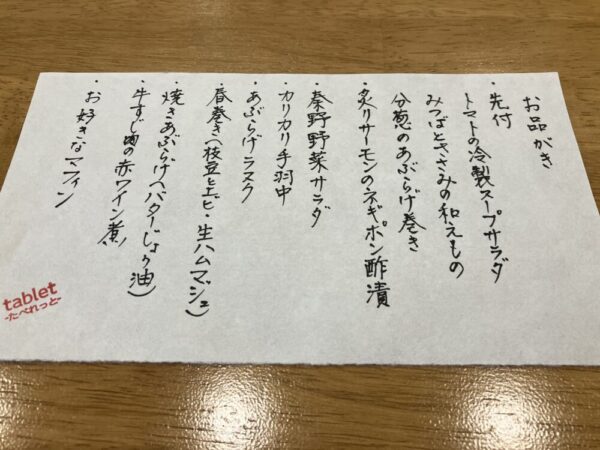 お品がき
・先付
トマトの冷製スープサラダ
みつばとささみの和えもの
分葱のあぶらげ巻き
・炙りサーモンのネギポン酢漬
・秦野野菜サラダ
・カリカリ手羽中
・あぶらげラスク
・春巻き(枝豆とエビ・生ハムマッシュ)
・焼きあぶらげ(バターしょう油)
・牛すじ肉の赤ワイン煮
・お好きなマフィン
tablet
-たべれっと-